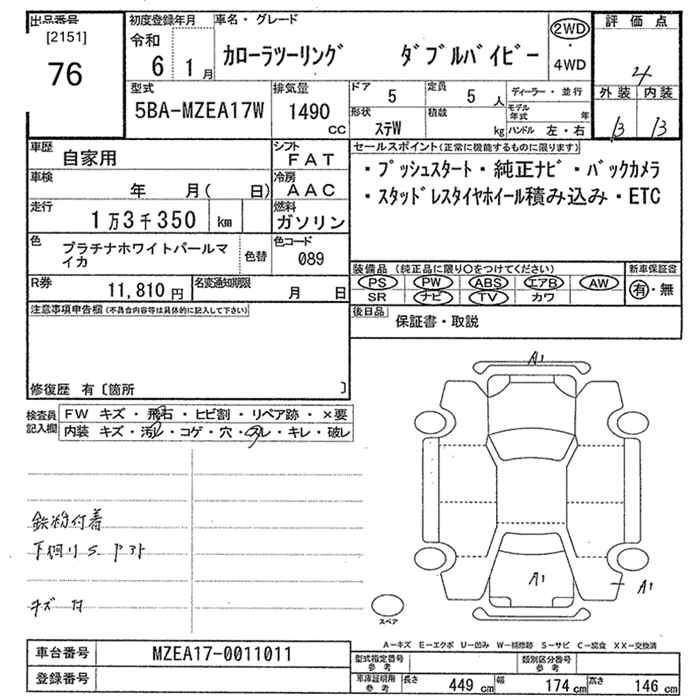 出品番号
[2151]
76
初度登録年月
令和
6 1月
車名・グレード
カローラツーリング ダブルバイビー
2WD
・
4WD
評価点
4
外装 内装
B B
型式
5BA-MZEA17W
排気量
1490
CC
ドア
5
定員
5
人
形状
ステW
積載
kg
ディーラー・並行
モデル
年式 年
ハンドル 左・右
車歴
自家用
シフト
FAT
車検
年 月( 日)
冷房
AAC
走行
1万3千350 km
燃料
ガソリン
色
プラチナホワイトパールマ
イカ
色替
色コード
089
R券
11,810 円
名変通知期限
月 日
セールスポイント(正常に機能するものに限ります)
・プッシュスタート・純正ナビ・バックカメラ
・スタッドレスタイヤホイール積み込み・ETC
装備品 (純正品に限り○をつけてください)
PS PW ABS エアB AW
SR ナビ TV カワ
新車保証書
有・無
後日品
保証書・取説
注意事項申告欄(不具合内容等は具体的に記入して下さい)
修復歴 有〔箇所 〕
検査員
記入欄
FW キズ・飛石・ヒビ割・リペア跡・×要
内装 キズ・汚レ・コゲ・穴・スレ・キレ・破レ
鉄粉付着
下回りS.
キズ
A1
A1
A1
スペア
A-キズ E-エクボ U-凹み W-補修跡 S-サビ C-腐食 XX-交換済
車台番号
MZEA17-0011011
登録番号
型式指定番号
参考
類別区分番号
参考
車庫証明用
参考
長さ 449 cm
幅 174 cm
高さ 146 cm